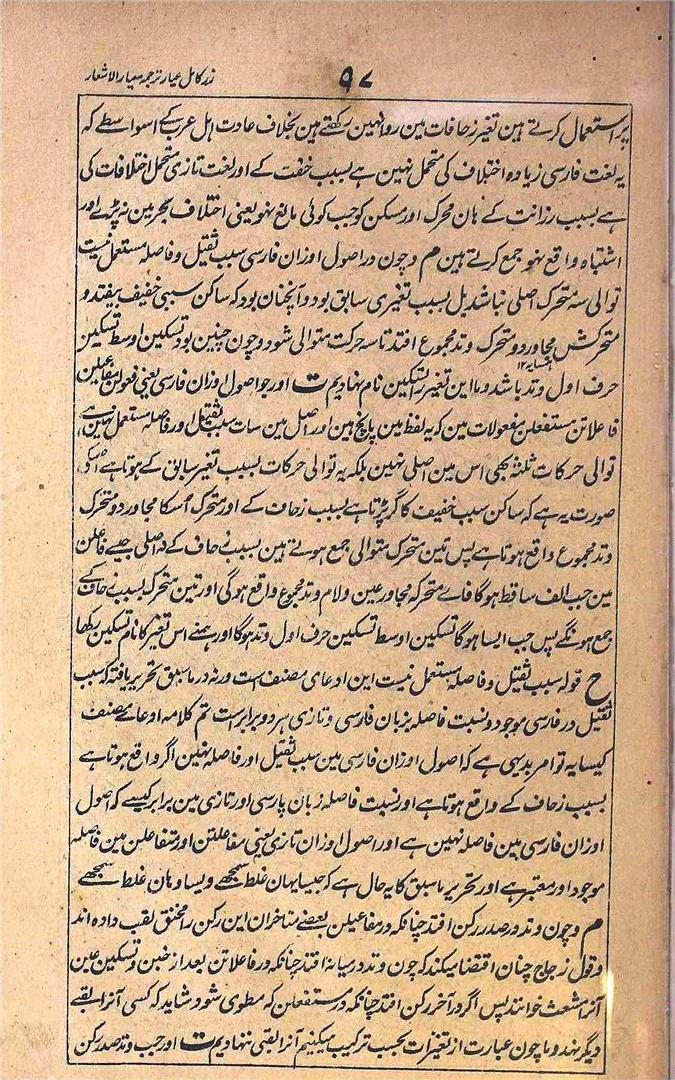 ۹۷
زر کامل عیار ترجمہ معیار الاشعار
پر استعمال کرتے ہین تغیر زحافات مین روا نہین رکھتے ہین بخلاف عادت اہل عرب کے اسواسطے کہ
یہ لغت فارسی زیادہ اختلاف کی متحمل نہین ہے بسبب خفت کے اور لغت تازی متحمل اختلافات کی
ہے بسبب رزانت کے ہان محرک اور مسکن کو جب کوئی مانع نہو یعنی اختلاف بحر مین نہ پڑے اور
اشتباہ واقع نہو جمع کرتے ہین م و چون در اصول اوزان فارسی سبب ثقیل و فاصلہ مستعمل نیست
توالی سہ متحرک اصلی نباشد بل بسبب تغیری سابق بود و آنچنان بود کہ ساکن سببی خفیف بیفتد و
متحرکش مجاور دو متحرک وتد مجموع افتد تا سہ حرکت متوالی شود و چون چنین بود تسکین اوسط تسکین
حرف اول وتد باشد و ما این تغیر را تسکین نام نہادیم ت اور جو اصول اوزان فارسی یعنی فعولن مفاعیلن
فاعلاتن مستفعلن مفعولات مین کہ یہ لفظ مین پانچ ہین اور اصل مین سات سبب ثقیل اور فاصلہ مستعمل نہین ہے
توالی حرکات ثلثہ بھی اس مین اصلی نہین بلکہ یہ توالی حرکات بسبب تغیر سابق کے ہوتا ہے اسکی
صورت یہ ہے کہ ساکن سبب خفیف کا گر پڑتا ہے بسبب زحاف کے اور متحرک اُسکا مجاور دو متحرک
وتد مجموع واقع ہوتا ہے پس تین متحرک متوالی جمع ہوتے ہین بسبب زحاف کے نہ اصلی جیسے فاعلن
مین جب الف ساقط ہوگا فاے متحرکہ مجاور عین و لام وتد مجموع واقع ہوگی اور تین متحرک بسبب زحاف کے
جمع ہونگے پس جب ایسا ہوگا تسکین اوسط تسکین حرف اول وتد ہوگا اور ہمنے اس تغیر کا نام تسکین رکھا
ح قولہ سبب ثقیل و فاصلہ مستعمل نیست این ادعای مصنف ست ورنہ در ما سبق تحریر یافتہ کہ سبب
ثقیل در فارسی موجود و نسبت فاصلہ بزبان فارسی و تازی ہر دو برابر ست تم کلامہ ادعاے مصنف
کیسا یہ تو امر بدیہی ہے کہ اصول اوزان فارسی مین سبب ثقیل اور فاصلہ نہین اگر واقع ہوتا ہے
بسبب زحاف کے واقع ہوتا ہے اور نسبت فاصلہ زبان پارسی اور تازی مین برابر کیسے کہ اصول
اوزان فارسی مین فاصلہ نہین ہے اور اصول اوزان تازی یعنی مفاعلتن اور متفاعلن مین فاصلہ
موجود اور معتبر ہے اور تحریر ما سبق کا یہ حال ہے کہ جیسا یہان غلط سمجھے ویسا وہان غلط سمجھے
م و چون وتد در صدر رکن افتد چنانکہ در مفاعیلن بعضے متاخران این رکن را مخنق لقب دادہ اند
و قول زجاج چنان اقتضا میکند کہ چون وتد در میانہ افتد چنانکہ در فاعلاتن بعد از خبن و تسکین عین
آنرا مشعث خوانند پس اگر در آخر رکن افتد چنانکہ در مستفعلن کہ مطوی شود شاید کہ کسی آنرا لقبے
دیگر نہد و ما چون عبارت از تغیرات بحسب ترکیب میکنیم آنرا لقبی ننہادیم ت اور جب وتد صدر رکن